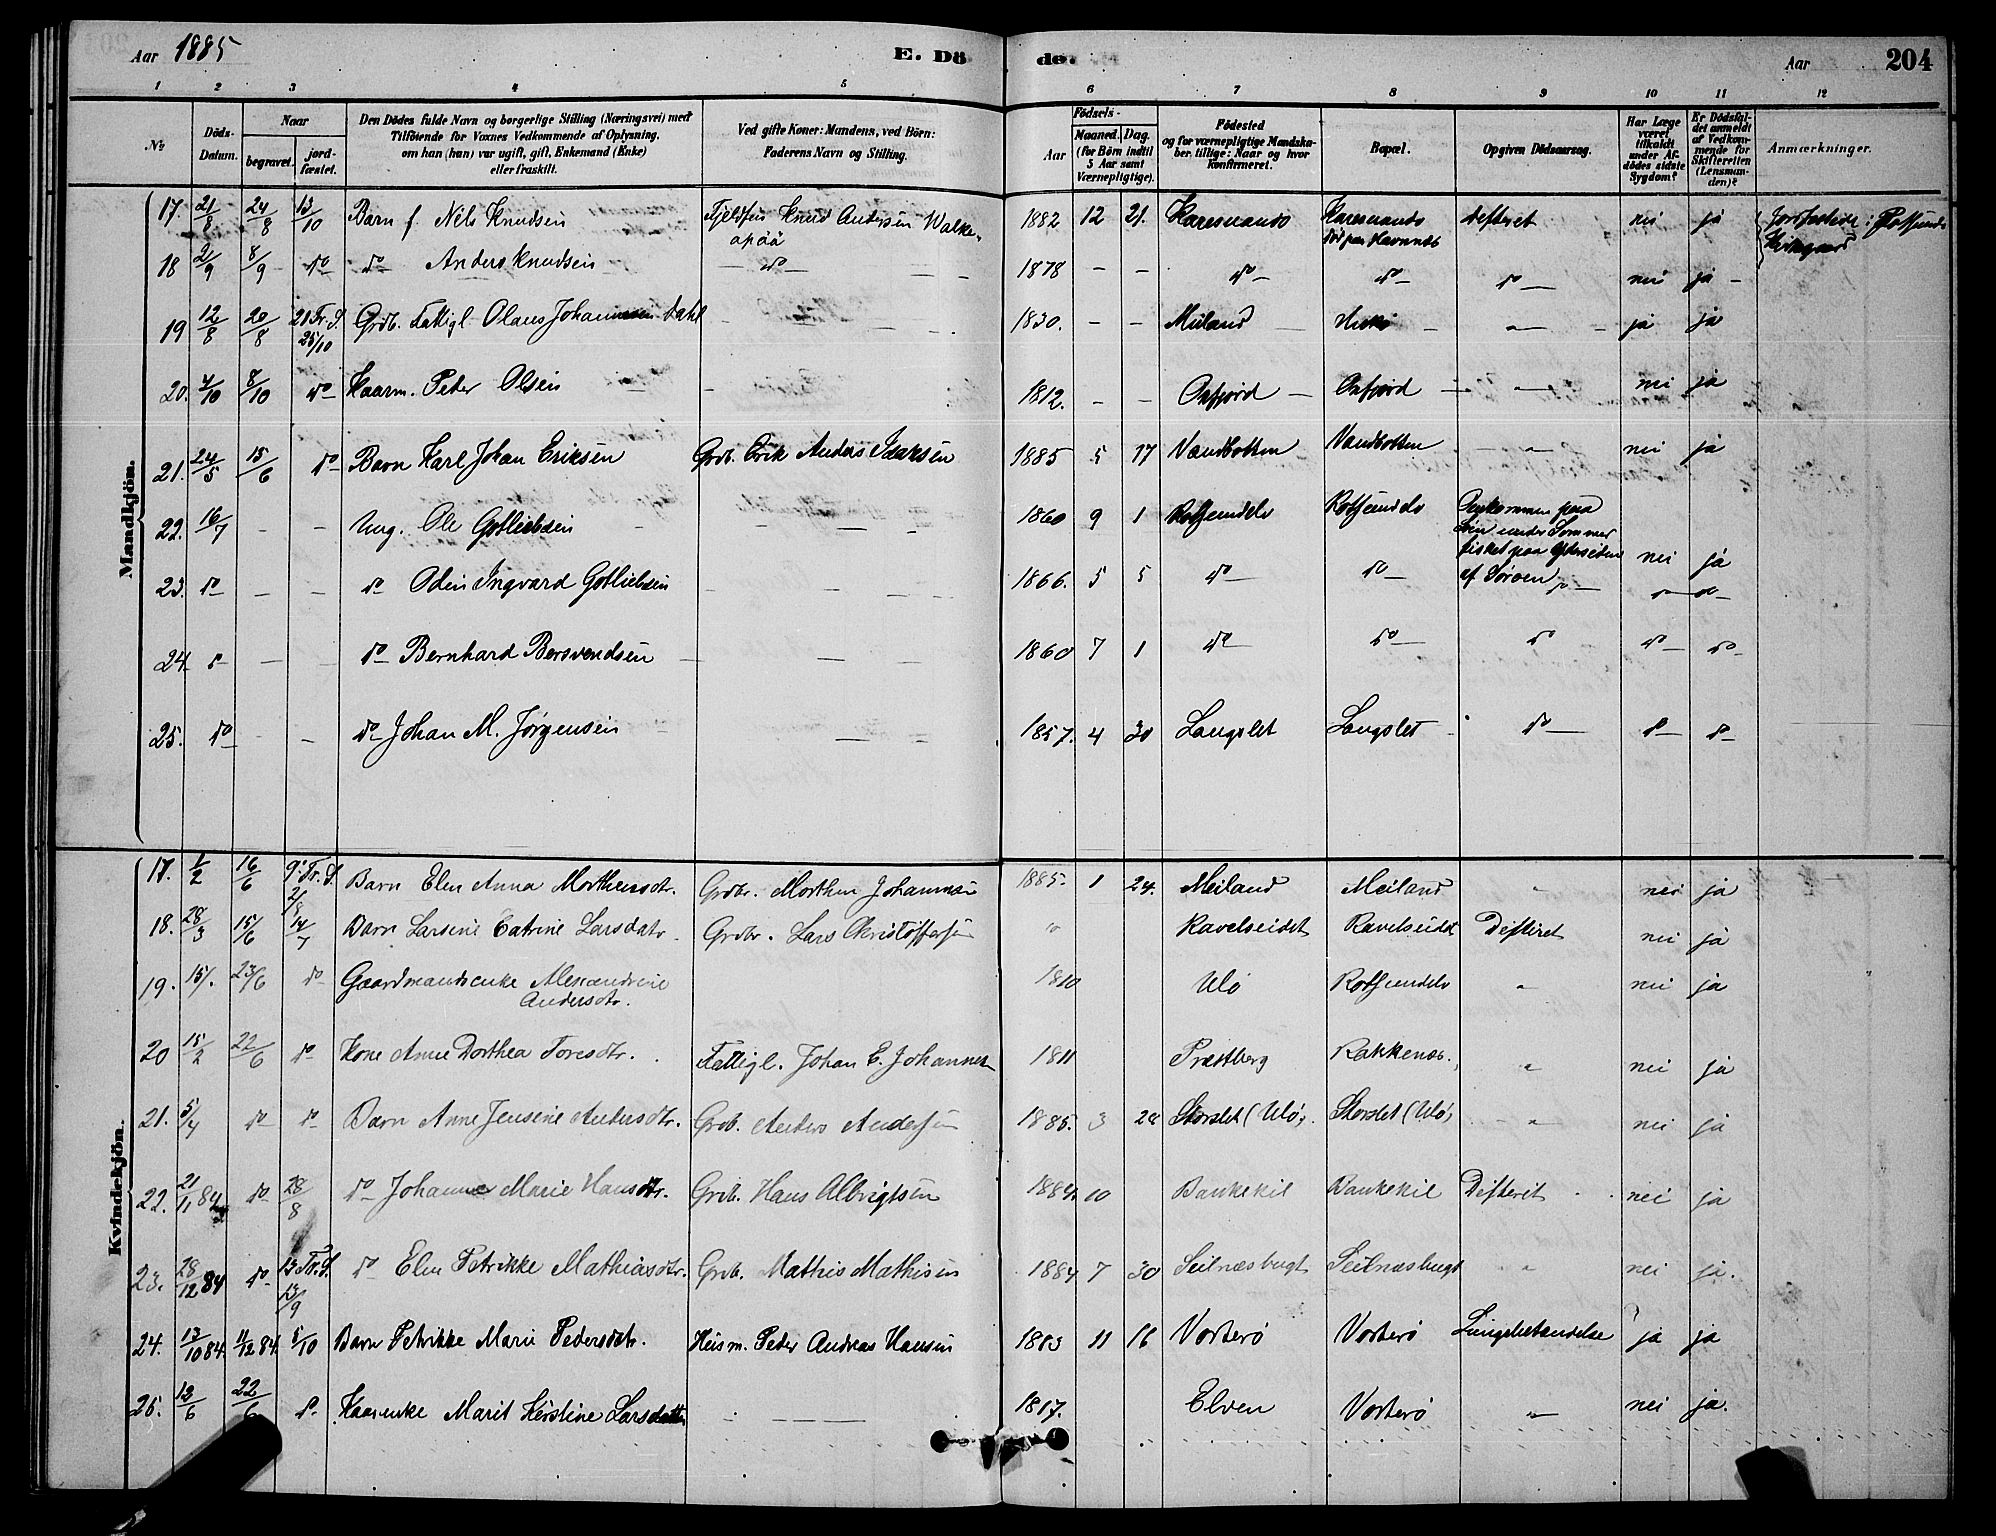 Aar 1885 E. Dö de. Aar 204
1 2 3 4 5 6 7 8 9 10 11 12
№ Döds-Datum. Naar begravet. jordfæstet. Den Dödes fulde Navn og borgerlige Stilling (Næringsvei) med Tilföiende for Voxnes Vedkommende af Oplysning, om han (hun) var ugift, gift, Enkemand (Enke) eller fraskilt. Ved gifte Koner: Mandens, ved Börn: Faderens Navn og Stilling. Födsels- Aar Maaned. Dag. (for Börn indtil 5 Aar samt Værnepligtige). Födested og for værnepligtige Mandskaber tillige: Naar og hvor konfirmeret. Bopæl. Opgiven Dödsaarsag. Har Læge været tilkaldt under Afdödes sidste Sygdom? Er Dödsfaldet anmeldt af Vedkommende for Skifteretten (Lensmanden)? Anmærkninger.
Mandkjön.
17. 21/8 24/8 13/10 Barn f. Nels Knudsen Fjeldfin Knud Andersen Walkeapää 1882 12 21. Karesuando Karesuando Död paa Havnnæs difterit nei ja Jordfæstede i Rotsunds Kirkegaard
18 2/9 8/9 do do Anders Knudsen do 1878 - - do do do nei ja
19 12/8 20/8 21 Tr. S. 25/10 Grdb. Fattigl. Olaus Johannesen Dahl 1830. - - Meiland " ja ja
20. 4/10 8/10 do Kaarm. Peter Olsen 1812. - - Oxfjord Oxfjord " nei ja
21. 24/5 15/6 do Barn Karl Johan Eriksen Grdb. Erik Anders Isaksen 1885 5 17 Vandbotten Vandbotten " nei ja
22. 16/7 - - Ung. Ole Gotliebsen 1860 9 1 Rotsundelv Rotsundelv Omkommen paa Söen under Sommer fisket paa Ydersiden af Söröen nei ja
23. do - - do Odin Ingvard Gotliebsen 1866. 5 5 do do do do do
24. do - - do Bernhard Bersvendsen 1860 7 1 do do do do do
25. do - - do Johan M. Jörgensen 1857. 4 30 Langslet Langslet do do do
Kvindekjön.
17. 1/2 16/6 9. Tr. S. 2/8 Barn Elen Anna Morthensdtr. Grdbr. Morthen Johannesen 1885. 1 24. Meiland Meiland " nei ja
18. 28/3 15/6 14/7 Barn Larsine Catrine Larsdatr. Grdbr. Lars Christoffersen " Ravelseidet Ravelseidet Difterit nei ja
19. 15/. 23/6 do Gaardmandsenke Alexandrine Andersdtr. 1810 Ulö Rotsundelv " nei ja
20 15/2 22/6 do Kone Anne Dorthea Toresdtr. Fattigl. Johan E. Johannesen 1811 Præstberg Rakkenæs. " nei ja
21. 5/4 do do Barn Anne Jensine Andersdtr. Grdb. Anders Andersen 1885. 3 28 Storslet (Ulö) Storslet (Ulö) " nei ja
22. 21/11 84 do 28/8 do Johanne Marie Hansdtr. Grdb. Hans Albrigtsen 1884. 10 Baukekil Baukekil Difterit nei ja
23. 28/12 84 do 13 Tr. S. 13/9 do Elen Petrikke Mathiasdtr. Grdb. Mathis Mathisen 1884 7 30 Seilnæsbugt Seilnæsbugt " nei ja.
24. 13/10 84. 11/12 84. 5/10 Barn Petrikke Marie Pedersdtr. Huusm. Peder Andreas Hansen 1883 11 16 Vorterö Vorterö Lungebetændelse ? ja ja
25. 12/6 22/6 do Kaarenke Marit Kirstine Larsdatter 1817. Elven Vorterö " nei ja.